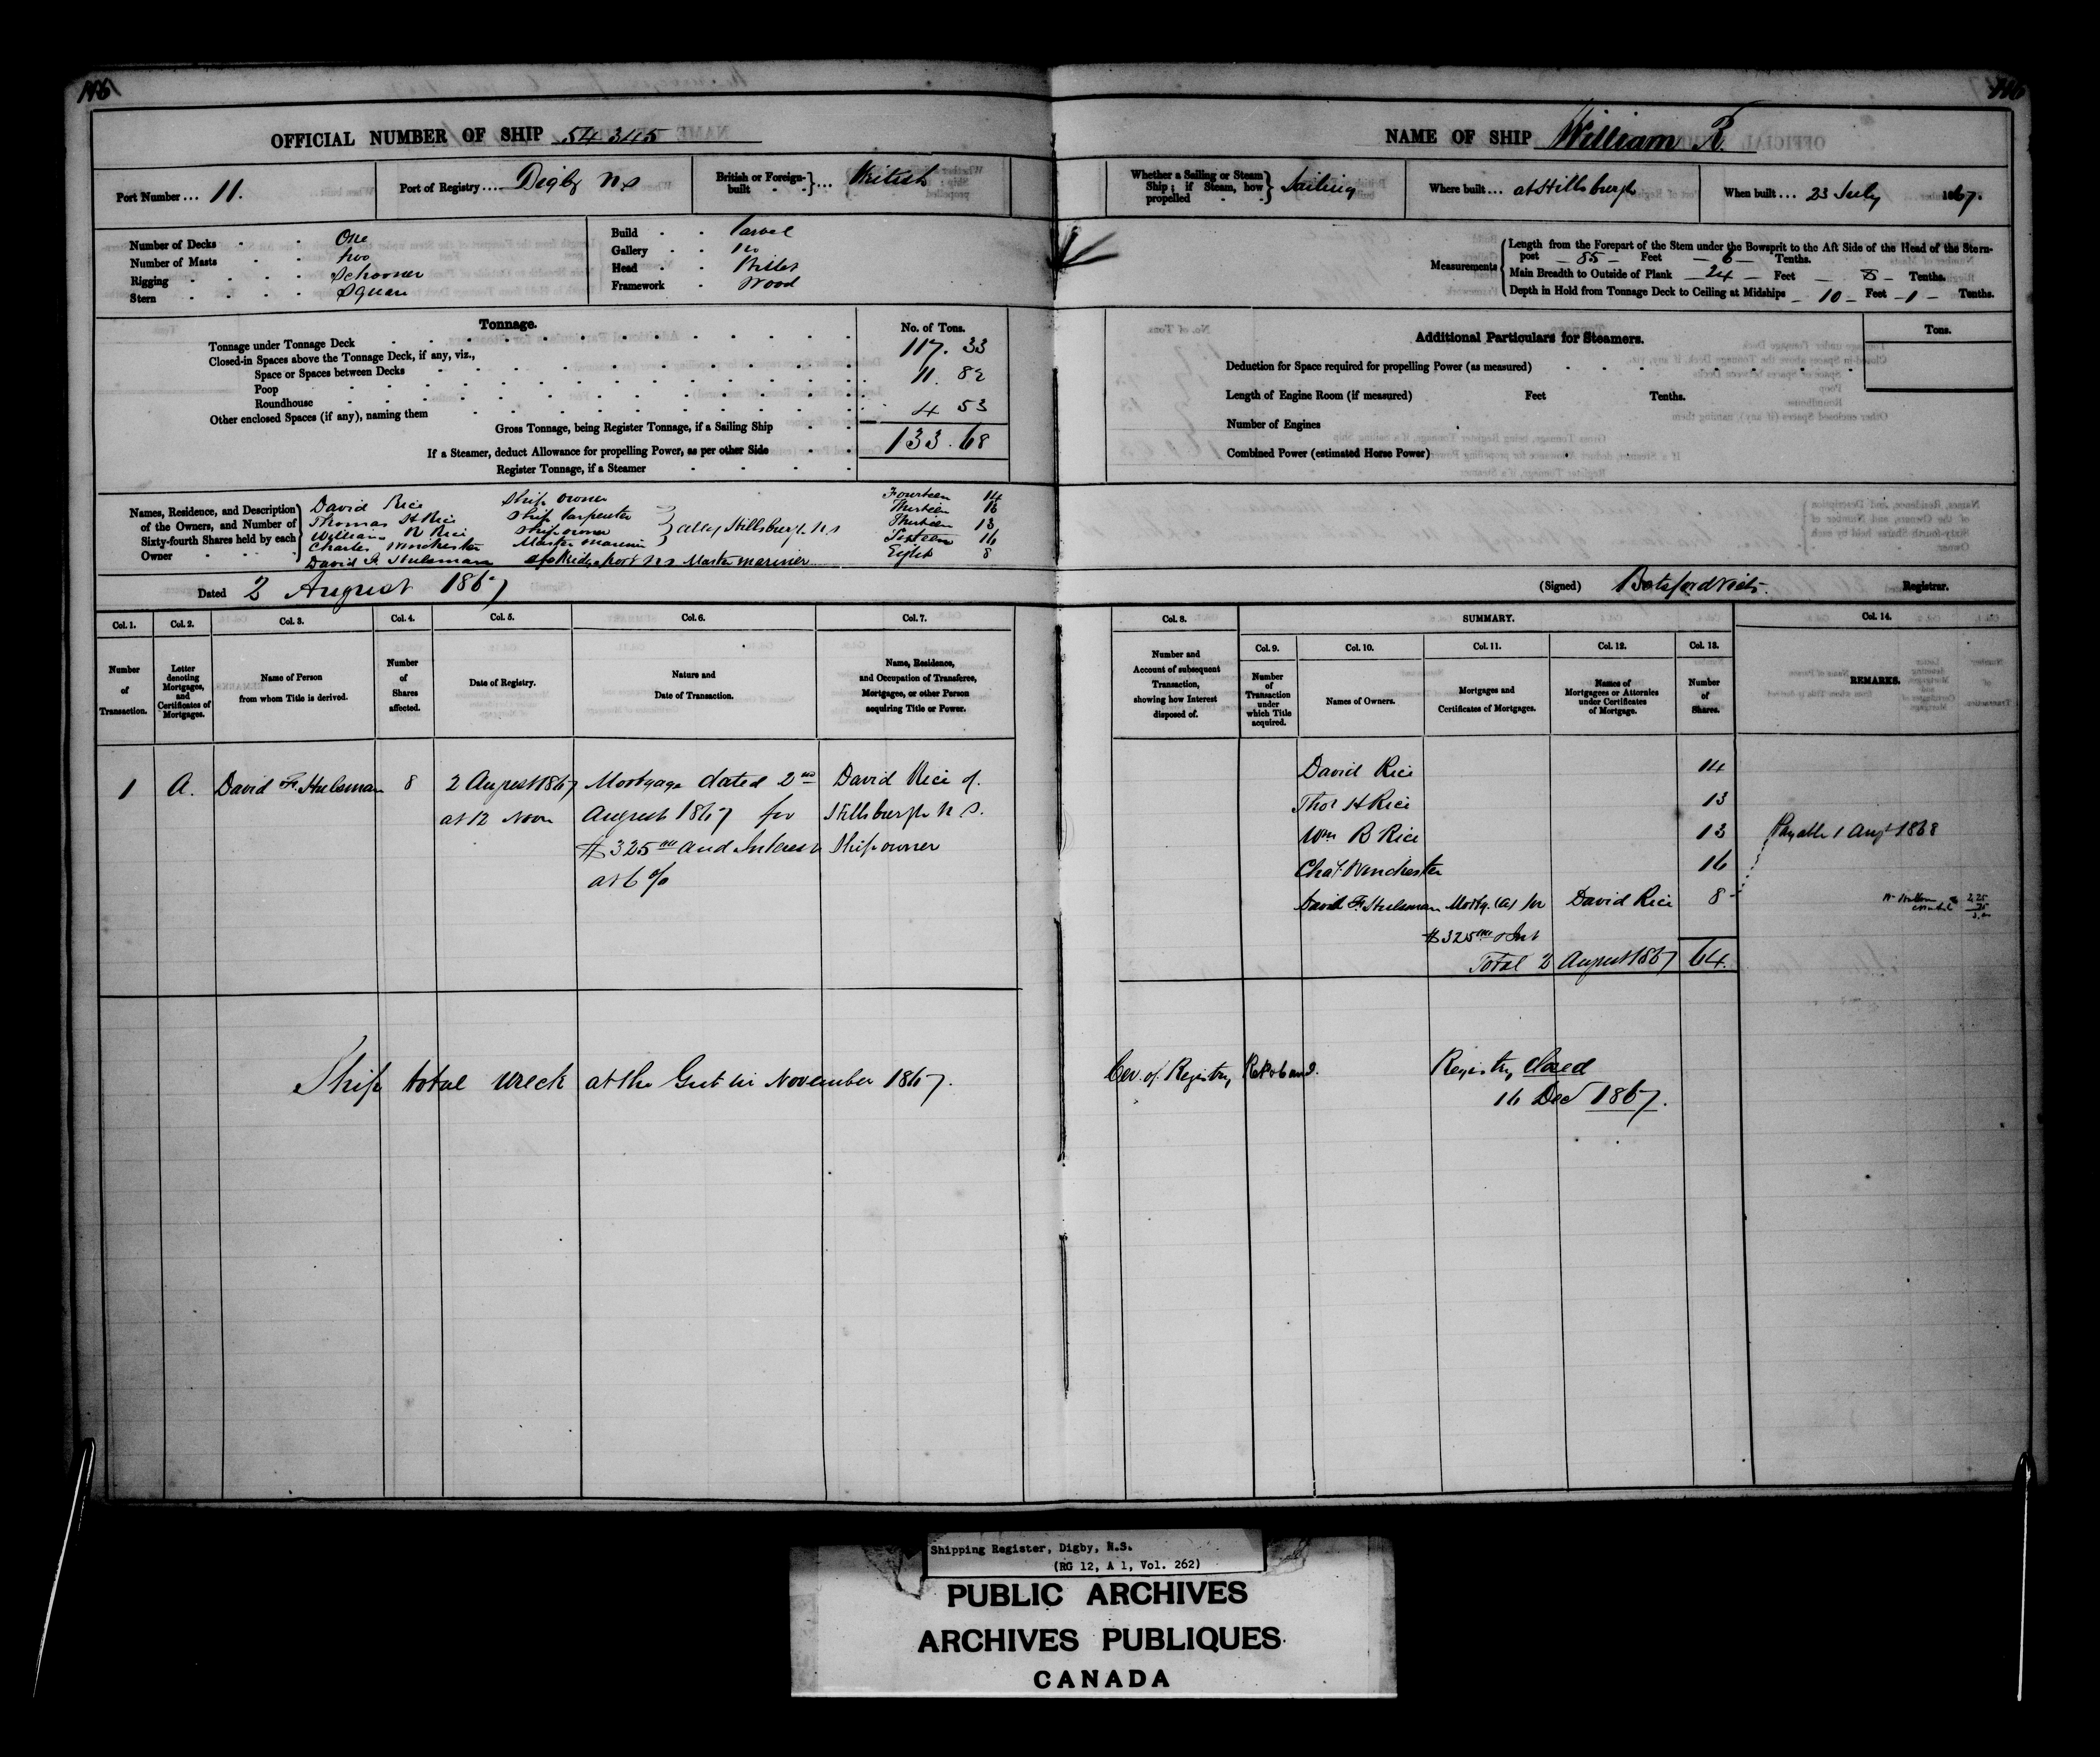 146
146
OFFICIAL NUMBER OF SHIP 54345
NAME OF SHIP William R.
Port Number ... 11.
Port of Registry .... Digby NS
British or Foreign-built } ... British
Whether a Sailing or Steam Ship; if Steam, how propelled } Sailing
Where built ... at Hillsburgh
When built ... 23 July 1867.
Number of Decks One
Number of Masts two
Rigging Schooner
Stern Square
Build Carvel
Gallery no
Head Billet
Framework Wood
Measurements
Length from the Forepart of the Stem under the Bowsprit to the Aft Side of the Head of the Stern-
post 85 Feet 6 Tenths.
Main Breadth to Outside of Plank 24 Feet 8 Tenths.
Depth in Hold from Tonnage Deck to Ceiling at Midships 10 Feet 1 Tenths.
Tonnage. No. of Tons.
Tonnage under Tonnage Deck 117. 33
Closed-in Spaces above the Tonnage Deck, if any, viz.,
Space or Spaces between Decks 11. 82
Poop
Roundhouse
Other enclosed Spaces (if any), naming them 4 53
Gross Tonnage, being Register Tonnage, if a Sailing Ship 133. 68
If a Steamer, deduct Allowance for propelling Power, as per other Side
Register Tonnage, if a Steamer
Additional Particulars for Steamers. Tons.
Deduction for Space required for propelling Power (as measured)
Length of Engine Room (if measured) Feet Tenths.
Number of Engines
Combined Power (estimated Horse Power)
Names, Residence, and Description of the Owners, and Number of Sixty-fourth Shares held by each Owner
David Rice Ship owner Fourteen 14
Thomas H Rice Ship Carpenter Thirteen 13
William R Rice Ship owner } all of Hillsburgh NS Thirteen 13
Charles Winchester Master Mariner Sixteen 16
David F. Hulsman of Bridgeport NS Master mariner Eight 8
Dated 2 August 1867
(Signed) Botsford Viets Registrar.
Col. 1. Col. 2. Col. 3. Col. 4. Col. 5. Col. 6. Col. 7.
Number of Transaction.
Letter denoting Mortgages, and Certificates of Mortgages.
Name of Person from whom Title is derived.
Number of Shares affected.
Date of Registry.
Nature and Date of Transaction.
Name, Residence, and Occupation of Transferee, Mortgagee, or other Person acquiring Title or Power.
Col. 8. SUMMARY. Col. 14.
Col. 9. Col. 10. Col. 11. Col. 12. Col. 13.
Number and Account of subsequent Transaction, showing how Interest disposed of.
Number of Transaction under which Title acquired.
Names of Owners.
Mortgages and Certificates of Mortgages.
Names of Mortgagees or Attornies under Certificates of Mortgage.
Number of Shares.
REMARKS.
1 A. David F. Hulsman 8 2 August 1867 Mortgage dated 2nd David Rice of
at 12 Noon August 1867 for Hillsburgh N S.
$325 00 and Interest Ship owner
at 6 %
David Rice 14
Thos H Rice 13
Wm R Rice 13 Payable 1 Augt 1868
Chas Winchester 16
David F. Hulsman Mortg. (A) for David Rice 8
$325 00 & Int
Total 2 August 1867 64.
2.25
Ship total wreck at the Gut in November 1867.
Cer. of Registry
Registry Closed
16 Decr 1867.
Shipping Register, Digby, N.S.
(RG 12, A 1, Vol. 262)
PUBLIC ARCHIVES
ARCHIVES PUBLIQUES
CANADA